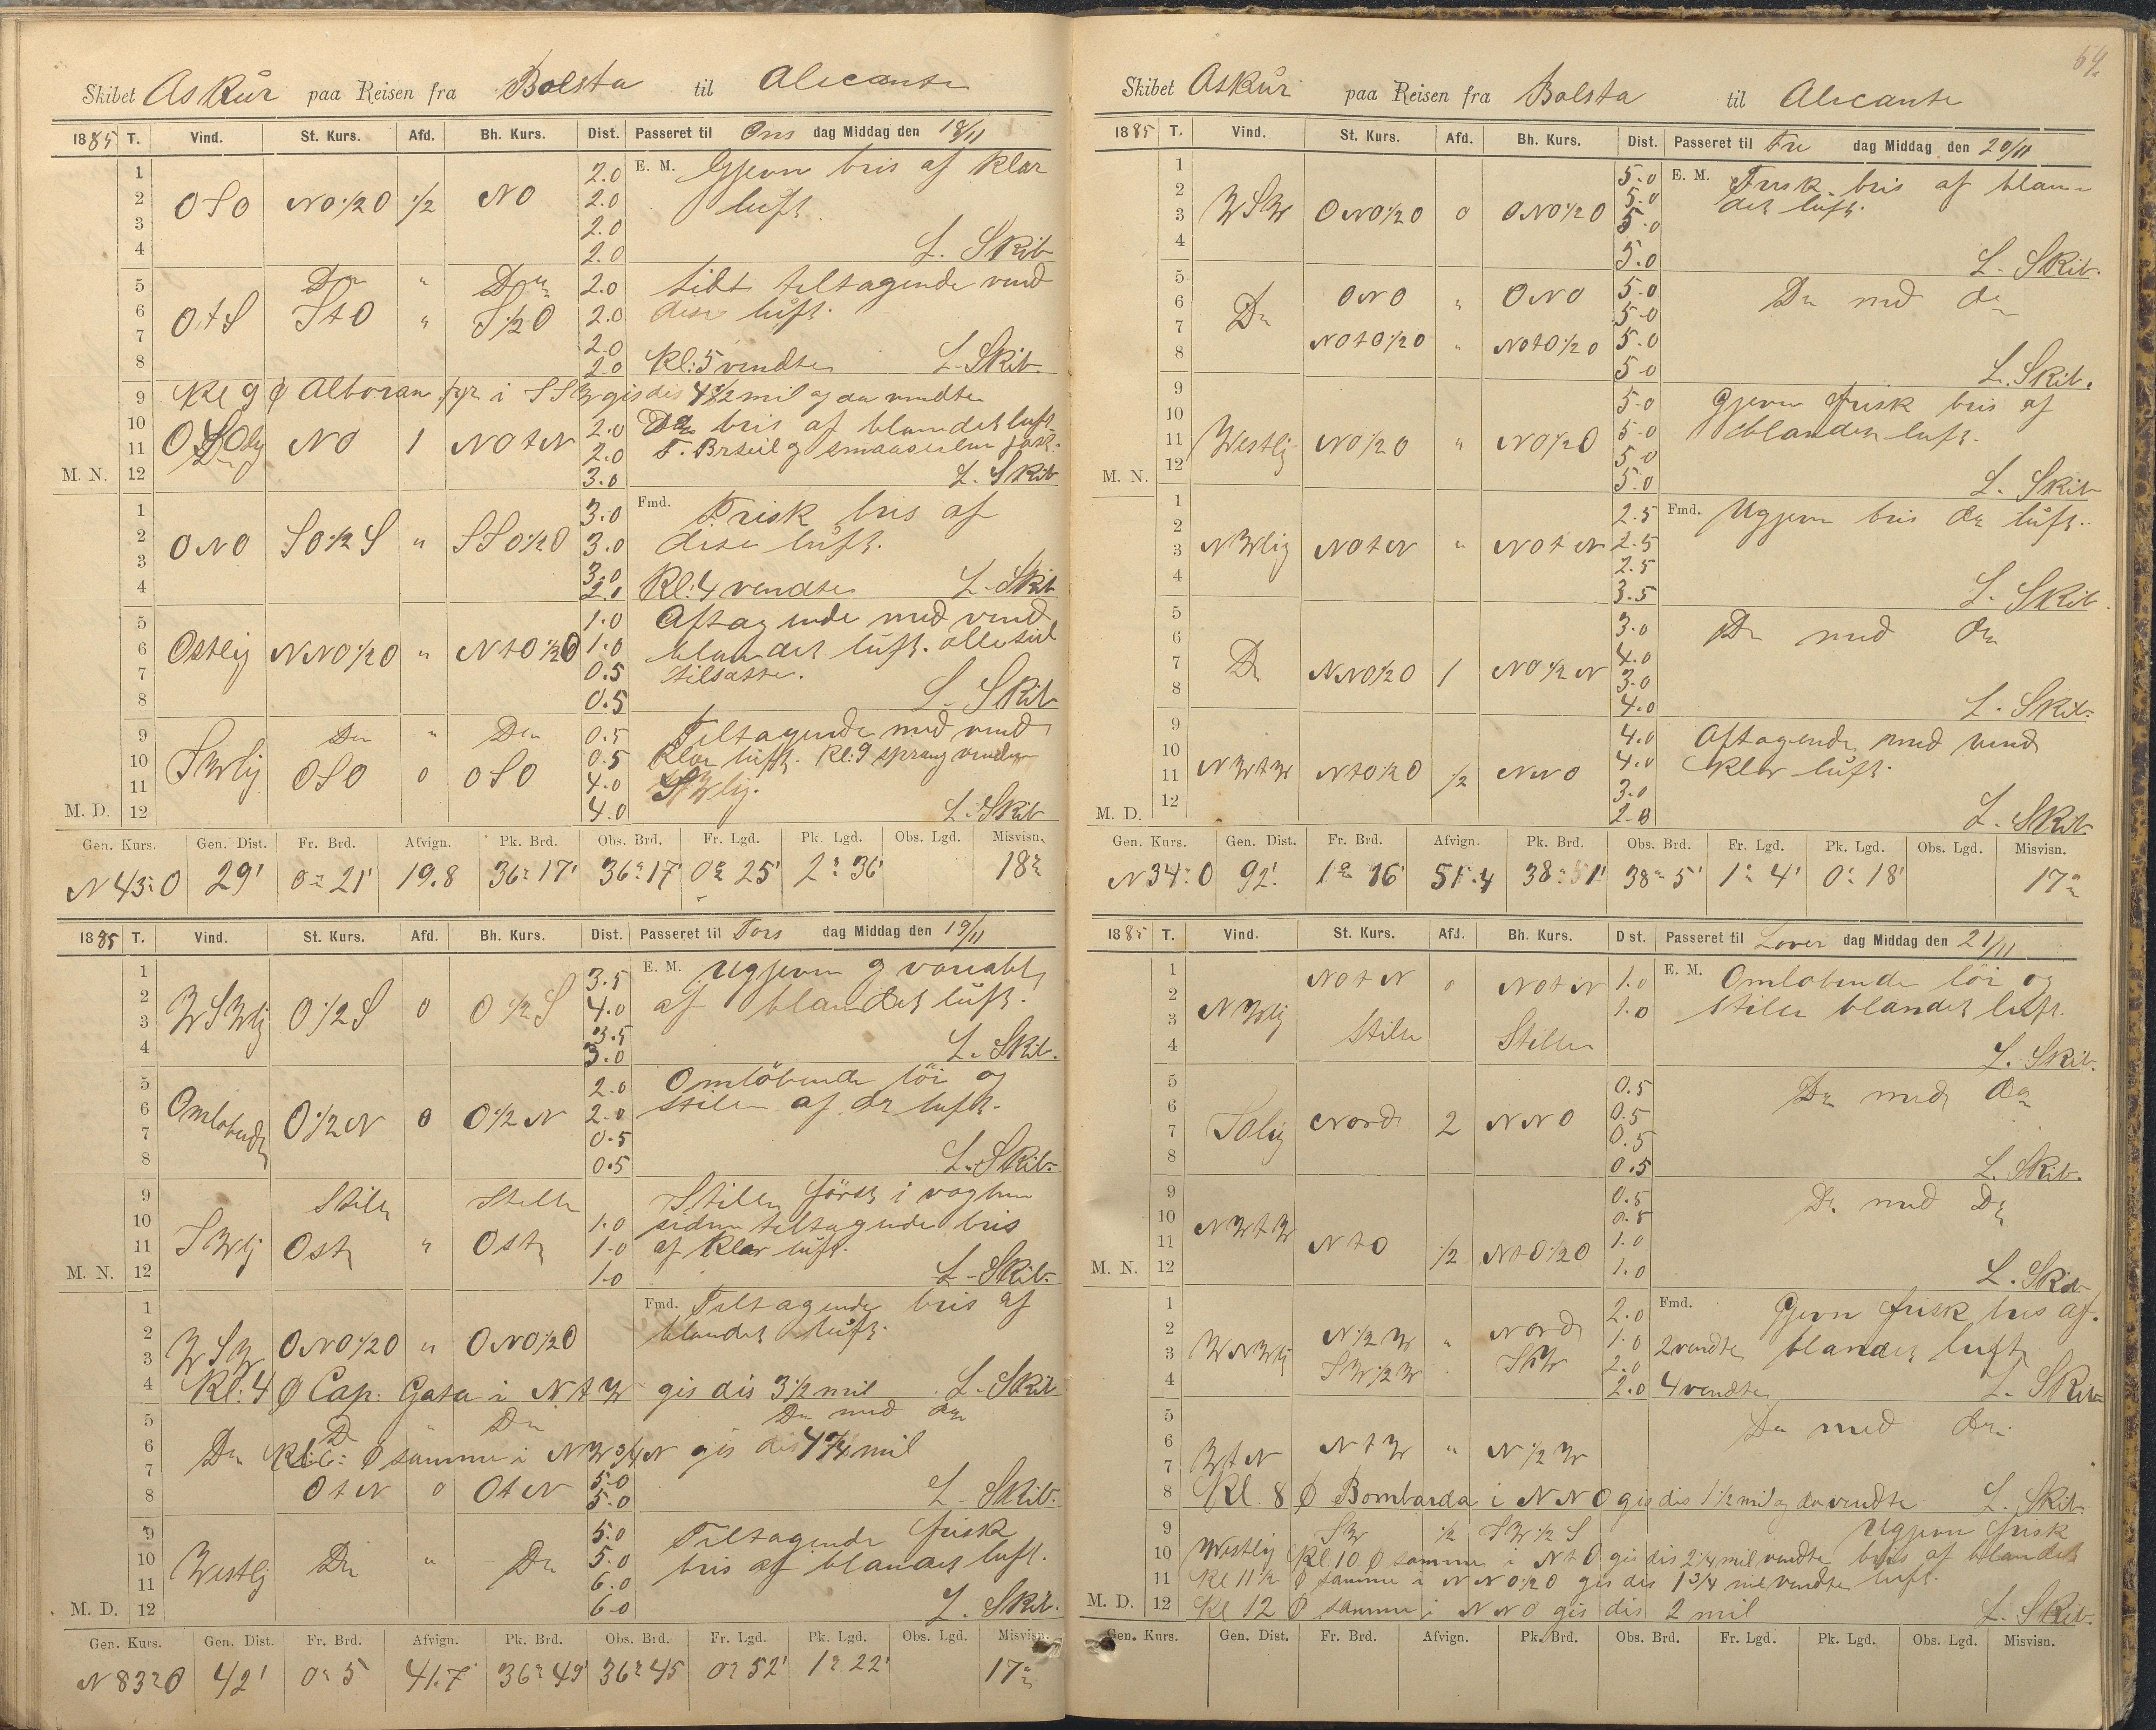 Skibet Askur paa Reisen fra Bolsta til Alicante
1885 T. Vind. St. Kurs. Afd. Bh. Kurs. Dist. Passeret til Ons dag Middag den 18/11
1 2.0 E. M. Gjevn bris af klar
2 OSO NO½O ½ NO 2.0 luft.
3 2.0
4 2.0 L. Skib
5 Do " Do 2.0 Lidt tiltagende vind
6 OtS StO " S½O 2.0 dise luft.
7 2.0
8 2.0 Kl: 5 vendte L. Skib.
9 Kl 9 Ø Alboran fyr i SSW gis dis 4½ mil og da vendte
10 NO 1 NOtN 2.0 bris af blandet luft.
11 2.0
M. N. 12 3.0 L. Skib
1 3.0 Fmd. Frisk bris af
2 ONO SO½S " SSO½O 3.0 dise luft.
3 3.0
4 2.0 Kl: 4 vendte L. Skib
5 1.0 Aftagende med vind
6 Ostlig NNO½O " NtO½O 1.0 blandet luft. alle seil
7 0.5 tilsatte.
8 0.5 L. Skib
9 Do " Do 0.5 Tiltagende med vind
10 SWlig OSO 0 OSO 0.5 Klar luft. Kl: 9 sprang vinden
11 4.0 SWlig.
M. D. 12 4.0 L. Skib
Gen. Kurs. Gen. Dist. Fr. Brd. Afvign. Pk. Brd. Obs. Brd. Fr. Lgd. Pk. Lgd. Obs. Lgd. Misvisn.
N 43° O 29' 0° 21' 19.8 36° 17' 36° 17' 0° 25' 2° 36' 18°
1885 T. Vind. St. Kurs. Afd. Bh. Kurs. Dist. Passeret til Tors dag Middag den 19/11
1 3.5 E. M. Ugjevn og variabl
2 WSWlig O½S 0 O½S 4.0 af blandet luft.
3 3.5
4 3.0 L. Skib.
5 2.0 Omløbende löi og
6 Omlobende O½N 0 O½N 2.0 stille af do luft.
7 0.5
8 0.5 L. Skib.
9 Stille Stille Stille først i vagten
10 1.0 siden tiltagende bris
11 SWlig Ost " Ost 1.0 af klar luft.
M. N. 12 1.0 L. Skib.
1 Fmd. Tiltagende bris af
2 WSW ONO½O " ONO½O blandet luft.
3
4 Kl: 4 Ø Cap: Gata i NtW gis dis 3½ mil L. Skib
5 Do " Do Do med do
6 Do Kl: 6: Ø samme i NW¾N gis dis 4¾ mil
7 5.0
8 OtN 0 OtN 5.0 L. Skib.
9 5.0 Tiltagende frisk
10 Westlig Do " Do 5.0 bris af blandet luft.
11 6.0
M. D. 12 6.0 L. Skib.
Gen. Kurs. Gen. Dist. Fr. Brd. Afvign. Pk. Brd. Obs. Brd. Fr. Lgd. Pk. Lgd. Obs. Lgd. Misvisn.
N 83° O 42' 0° 5 41.7 36° 49' 36° 45 0° 52' 1° 22' 17°
64.
Skibet Askur paa Reisen fra Bolsta til Alicante
1885 T. Vind. St. Kurs. Afd. Bh. Kurs. Dist. Passeret til Fre dag Middag den 20/11
1 5.0 E. M. Frisk bris af blan-
2 WSW ONO½O 0 ONO½O 5.0 det luft.
3 5.0
4 5.0 L. Skib.
5 ONO " ONO 5.0 Do med do
6 Do 5.0
7 NOtO½O " NOtO½O 5.0
8 5.0 L. Skib.
9 5.0 Gjevn frisk bris af
10 5.0 blandet luft.
11 Westlig NO½O " NO½O 5.0
M. N. 12 5.0 L. Skib
1 2.5 Fmd. Ugjevn bris do luft.
2 2.5
3 NWlig NOtN " NOtN 2.5
4 3.5 L. Skib.
5 3.0 Do med do
6 4.0
7 Do NNO½O 1 NO½N 3.0
8 4.0 L. Skib.
9 4.0 Aftagende med vind
10 4.0 klar luft.
11 NWtW NtO½O ½ NNO 3.0
M. D. 12 2.0 L. Skib.
Gen. Kurs. Gen. Dist. Fr. Brd. Afvign. Pk. Brd. Obs. Brd. Fr. Lgd. Pk. Lgd. Obs. Lgd. Misvisn.
N 34° O 92' 1° 16' 51.4 38° 51' 38° 5' 1° 4' 0° 18' 17°
1885 T. Vind. St. Kurs. Afd. Bh. Kurs. Dist. Passeret til Lover dag Middag den 21/11
1 NOtN 0 NOtN 1.0 E. M. Omlobende löi og
2 NWlig 1.0 stille blandet luft.
3 Stille Stille
4 L. Skib.
5 0.5 Do med do
6 0.5
7 Solig Nord 2 NNO 0.5
8 0.5 L. Skib.
9 0.5 Do med Do
10 NWtW 0.5
11 NtO ½ NtO½O 1.0
M. N. 12 1.0 L. Skib
1 2.0 Fmd. Gjevn frisk bris af
2 WNWlig N½W " Nord 1.0 2 vendte blandet luft
3 SW½W SW 2.0
4 2.0 4 vendte L. Skib
5 Do med do
6 WtN NtW " N½W
7
8 Kl. 8 Ø Bombarda i NNO gis dis 1½ mil og da vendte L. Skib
9 SW ½ SW½S Ugjevn frisk
10 Westlig Kl: 10 Ø samme i NtO gis dis 2¼ mil vendte bris af blandet
11 Kl 11½ Ø samme i NNO½O gis dis 1¾ mil vendte luft.
M. D. 12 Kl 12 Ø samme i NNO gis dis 2 mil L. Skib.
Gen. Kurs. Gen. Dist. Fr. Brd. Afvign. Pk. Brd. Obs. Brd. Fr. Lgd. Pk. Lgd. Obs. Lgd. Misvisn.